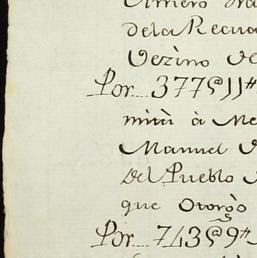 Arriero
de la Recua
Vezino de
Por... 377
mitì à Me
Manuel
del Pueblo
que Otorgò
Por... 743